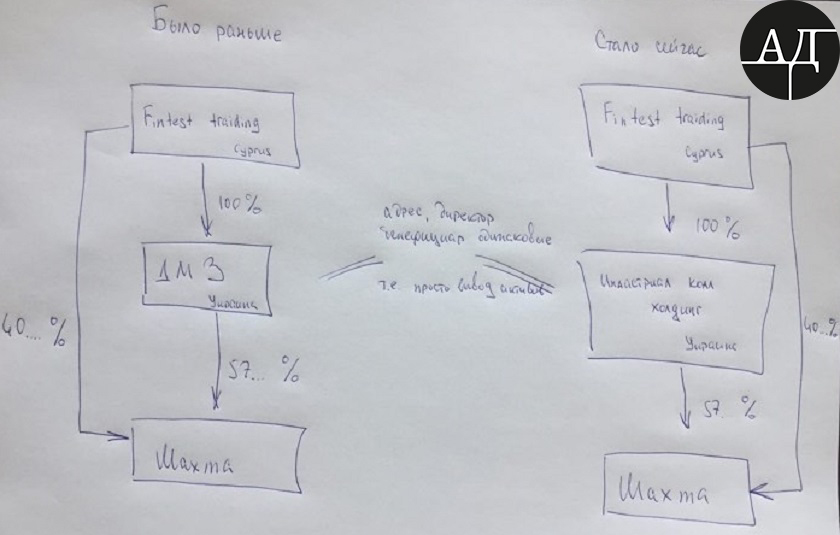 АД
Было раньше
Fintest traiding
Cyprus
100%
ДМЗ
Украина
40.... %
57... %
Шахта
адрес, директор
бенефициар одинаковые
т.е. просто вывод активов
Стало сейчас
Fintest traiding
Cyprus
100%
Индастриал коал
холдинг
Украина
40..%
57.. %
Шахта